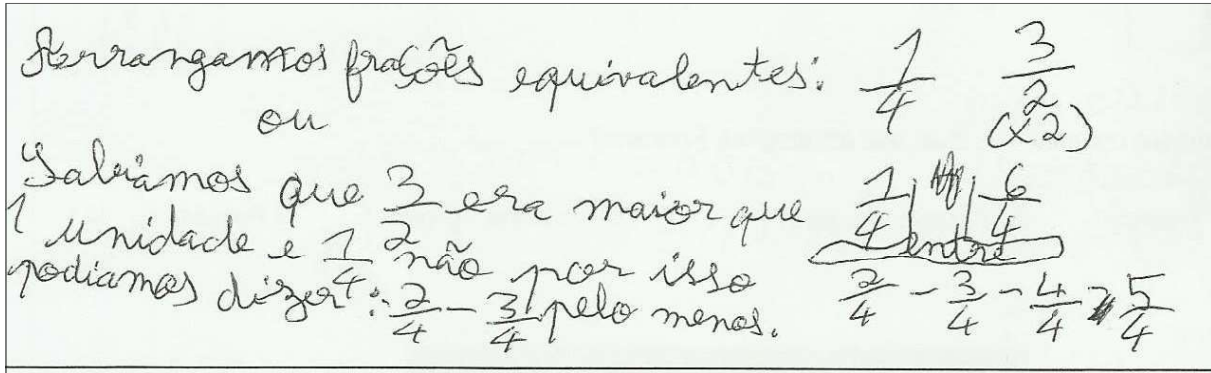 Arrangamos frações equivalentes: 1/4 3/2 (x2)
ou
Sabiamos que 3/2 era maior que
1 unidade e 1/4 não por isso
podiamos dizer: 2/4 - 3/4 pelo menos.
1/4 | | 6/4
entre
2/4 - 3/4 - 4/4 - 5/4